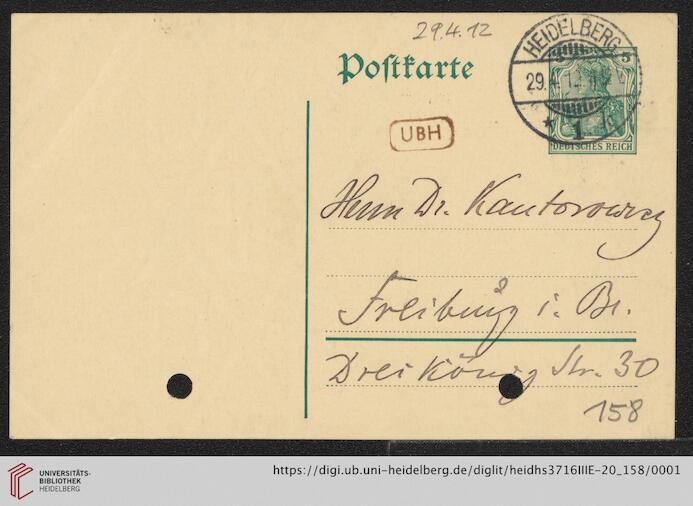 29.4.12
Postkarte
HEIDELBERG
29.4.12
* 1
5
DEUTSCHES REICH
UBH
Herrn Dr. Kantorowicz
Freiburg i. Br.
Dreikönig Str. 30
158
UNIVERSITÄTS-
BIBLIOTHEK
HEIDELBERG
https://digi.ub.uni-heidelberg.de/diglit/heidhs3716IIIE-20_158/0001